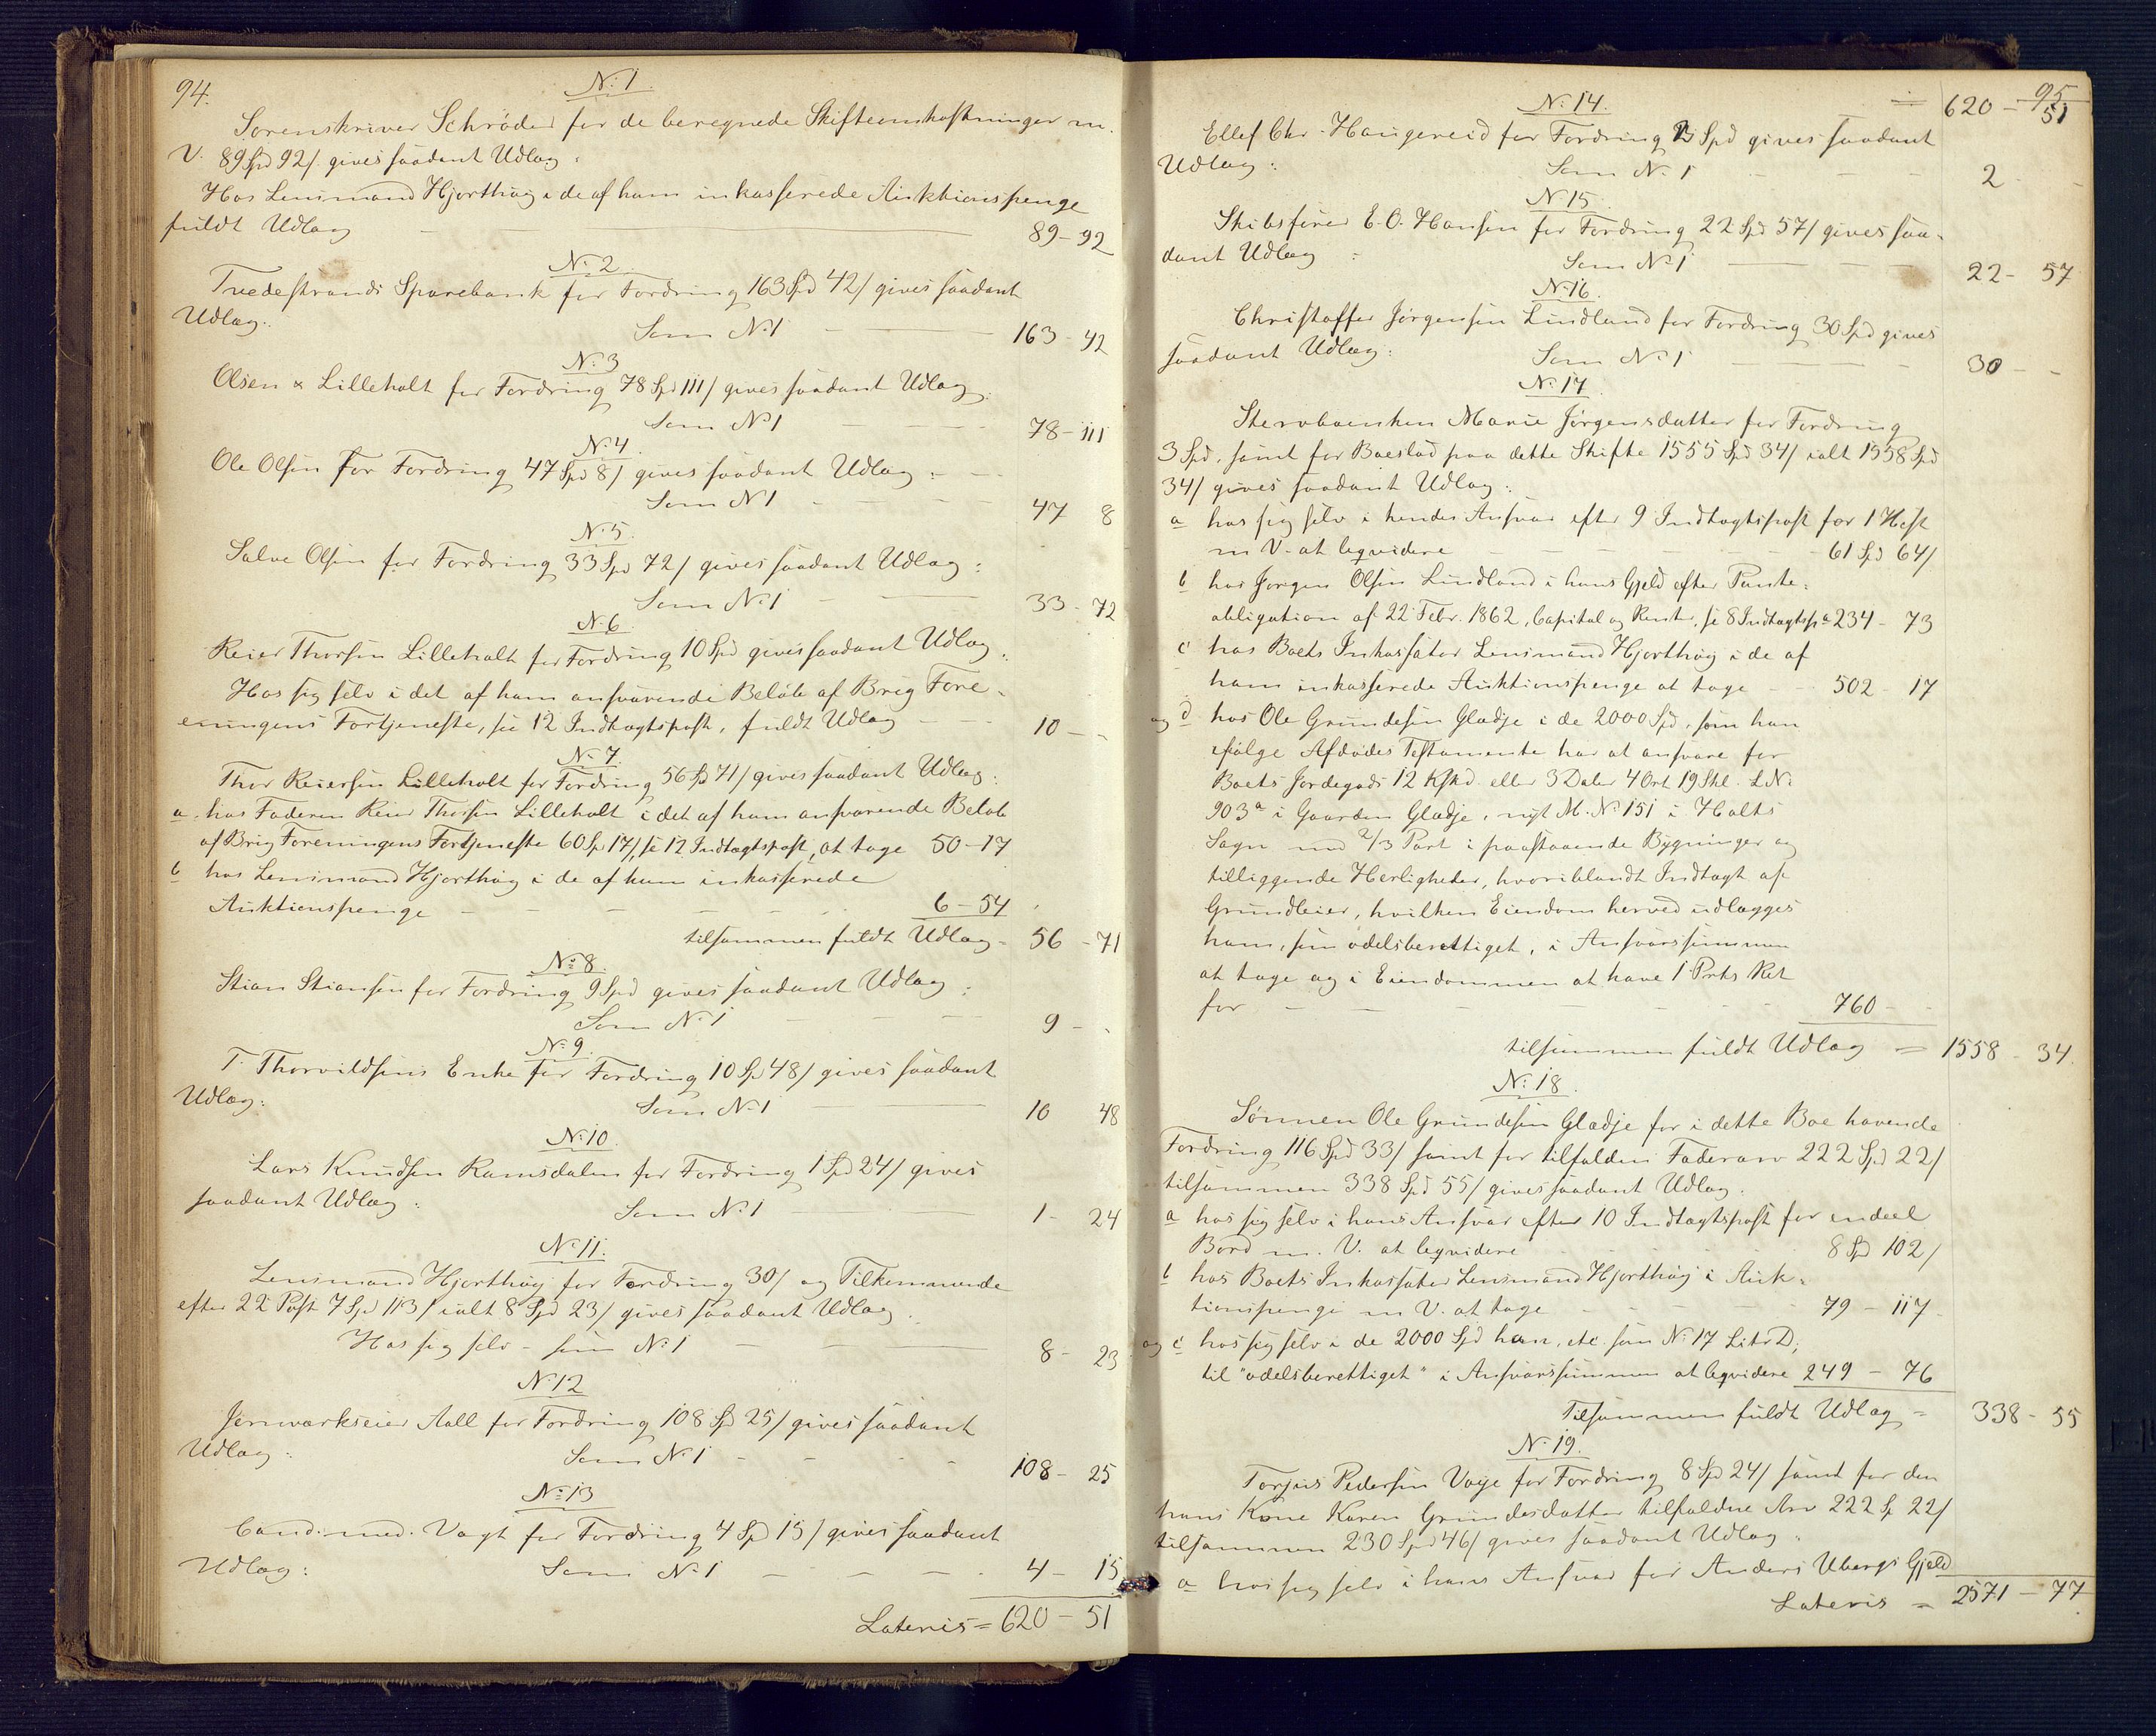 94.
No 1.
Sorenskriver Schrøder for de beregnede Skifteomkostninger m.
V. 89 Spd 92/ gives saadant Udlæg:
Hos Lensmand Hjorthøig i de af ham inkasserede Auktionspenge
fuldt Udlæg — 89-92
No 2.
Tvedestrands Sparebank for Fordring 163 Spd 42/ gives saadant
Udlæg: Som No 1 — 163-42
No 3
Olsen & Lilleholt for Fordring 78 Spd 111/ gives saadant Udlæg:
Som No 1 — 78-111
No 4.
Ole Olsen for Fordring 47 Spd 8/ gives saadant Udlæg: -
Som No 1 — 47 8
No 5.
Salve Olsen for Fordring 33 Spd 72/ gives saadant Udlæg:
Som No 1 — 33-72
No 6.
Reier Thorsen Lilleholt for Fordring 10 Spd gives saadant Udlæg:
Hos sig selv i det af ham ansvarende Beløb af Brig Fore-
eningens Fortjeneste, se 12 Indtægtspost, fuldt Udlæg — 10 - -
No 7.
Thor Reiersen Lilleholt for Fordring 56 Spd 71/ gives saadant Udlæg:
a. hos Faderen Reier Thorsen Lilleholt i det af ham ansvarende Beløb
af Brig Foreningens Fortjeneste 60 Sp 17/, se 12 Indtægtspost, at tage 50-17
b hos Lensmand Hjorthøig i de af ham inkasserede
Auktionspenge — 6-54
tilsammen fuldt Udlæg - 56-71
No 8.
Stian Stiansen for Fordring 9 Spd gives saadant Udlæg:
Som No 1 — 9 - -
No 9.
T. Thorvildsens Enke for Fordring 10 Spd 48/ gives saadant
Udlæg: Som No 1 — 10 48
No 10.
Lars Knudsen Ramsdalen for Fordring 1 Spd 24/ gives
saadant Udlæg: Som No 1 — 1-24
No 11.
Lensmand Hjorthøig for Fordring 30/ og Tilkommende
efter 22 Post 7 Spd 113/ ialt 8 Spd 23/ gives saadant Udlæg:
Hos sig selv - som No 1 — 8-23
No 12
Jernværkseier Aall for Fordring 108 Spd 25/ gives saadant
Udlæg: Som No 1 — 108-25
No 13
Cand. med. Vogt for Fordring 4 Spd 15/ gives saadant
Udlæg: Som No 1 — 4-15
Lateris = 620-51
95
No 14. = 620-51
Ellef Chr. Haugereid for Fordring 2 Spd gives saadant
Udlæg: Som No 1 — 2 - -
No 15.
Skibsfører E. O. Hansen for Fordring 22 Spd 57/ gives saa-
dant Udlæg: Som No 1 — 22-57
No 16.
Christoffer Jørgensen Lindland for Fordring 30 Spd gives
saadant Udlæg: Som No 1 — 30 - -
No 17.
Stervboenken Marie Jørgensdatter for Fordring
3 Spd. samt for Boeslod paa dette Skifte 1555 Spd 34/ ialt 1558 Spd
34/ gives saadant Udlæg:
a hos sig selv i hendes Ansvar efter 9 Indtægtspost for 1 Hest
m V. at leqvidere — 61 Spd 64/
b hos Jørgen Olsen Lindland i hans Gjeld efter Pante-
obligation af 22 Febr. 1862, Capital og Renter, se 8 Indtægtsp. 234-73
c hos Boets Inkassator Lensmand Hjorthøig i de af
ham inkasserede Auktionspenge at tage — 502-17
og d hos Ole Grundesen Gladje i de 2000 Spd. som han
ifølge Afdødes Testamente har at ansvare for
Boets Jordegods 12 Kskd. eller 3 Daler 4 Ort 19 Skl. L. No
903a i Gaarden Gladje, nyt M. No 151 i Holts
Sogn med 2/3 Part i paastaaende Bygninger og
tilliggende Herligheder, hvoriblandt Indtægt af
Grundleier, hvilken Eiendom herved udlægges
ham, som odelsberettiget, i Ansvarssummen
at tage og i Eiendommen at have 1 Prts Ret
for — 760 -
tilsammen fuldt Udlæg = 1558-34.
No 18.
Sønnen Ole Grundesen Gladje for i dette Boe havende
Fordring 116 Spd 33/ samt for tilfalden Faderarv 222 Spd 22/
tilsammen 338 Spd 55/ gives saadant Udlæg.
a hos sig selv i hans Ansvar efter 10 Indtægtspost for endeel
Bord m. V. at leqvidere — 8 Spd 102/
b hos Boets Inkassator Lensmand Hjorthøig i Auk-
tionspenge m V. at tage — 79-117-
og c hos sig selv i de 2000 Spd han, etc. som No 17 Litr D,
til "odelsberettiget" i Ansvarssummen at leqvidere 249-76
Tilsammen fuldt Udlæg = 338-55
No 19.
Torjus Pedersen Voje for Fordring 8 Spd 24/ samt for den
hans Kone Karen Grundesdatter tilfaldne Arv 222 Sp 22/
tilsammen 230 Spd 46/ gives saadant Udlæg:
a hos sig selv i hans Ansvar for Anders Ubergs Gjeld
Lateris = 2571-77